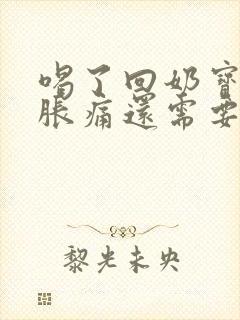 喝了回奶寶
脹痛還需要
黎光未央